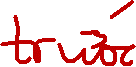 trước